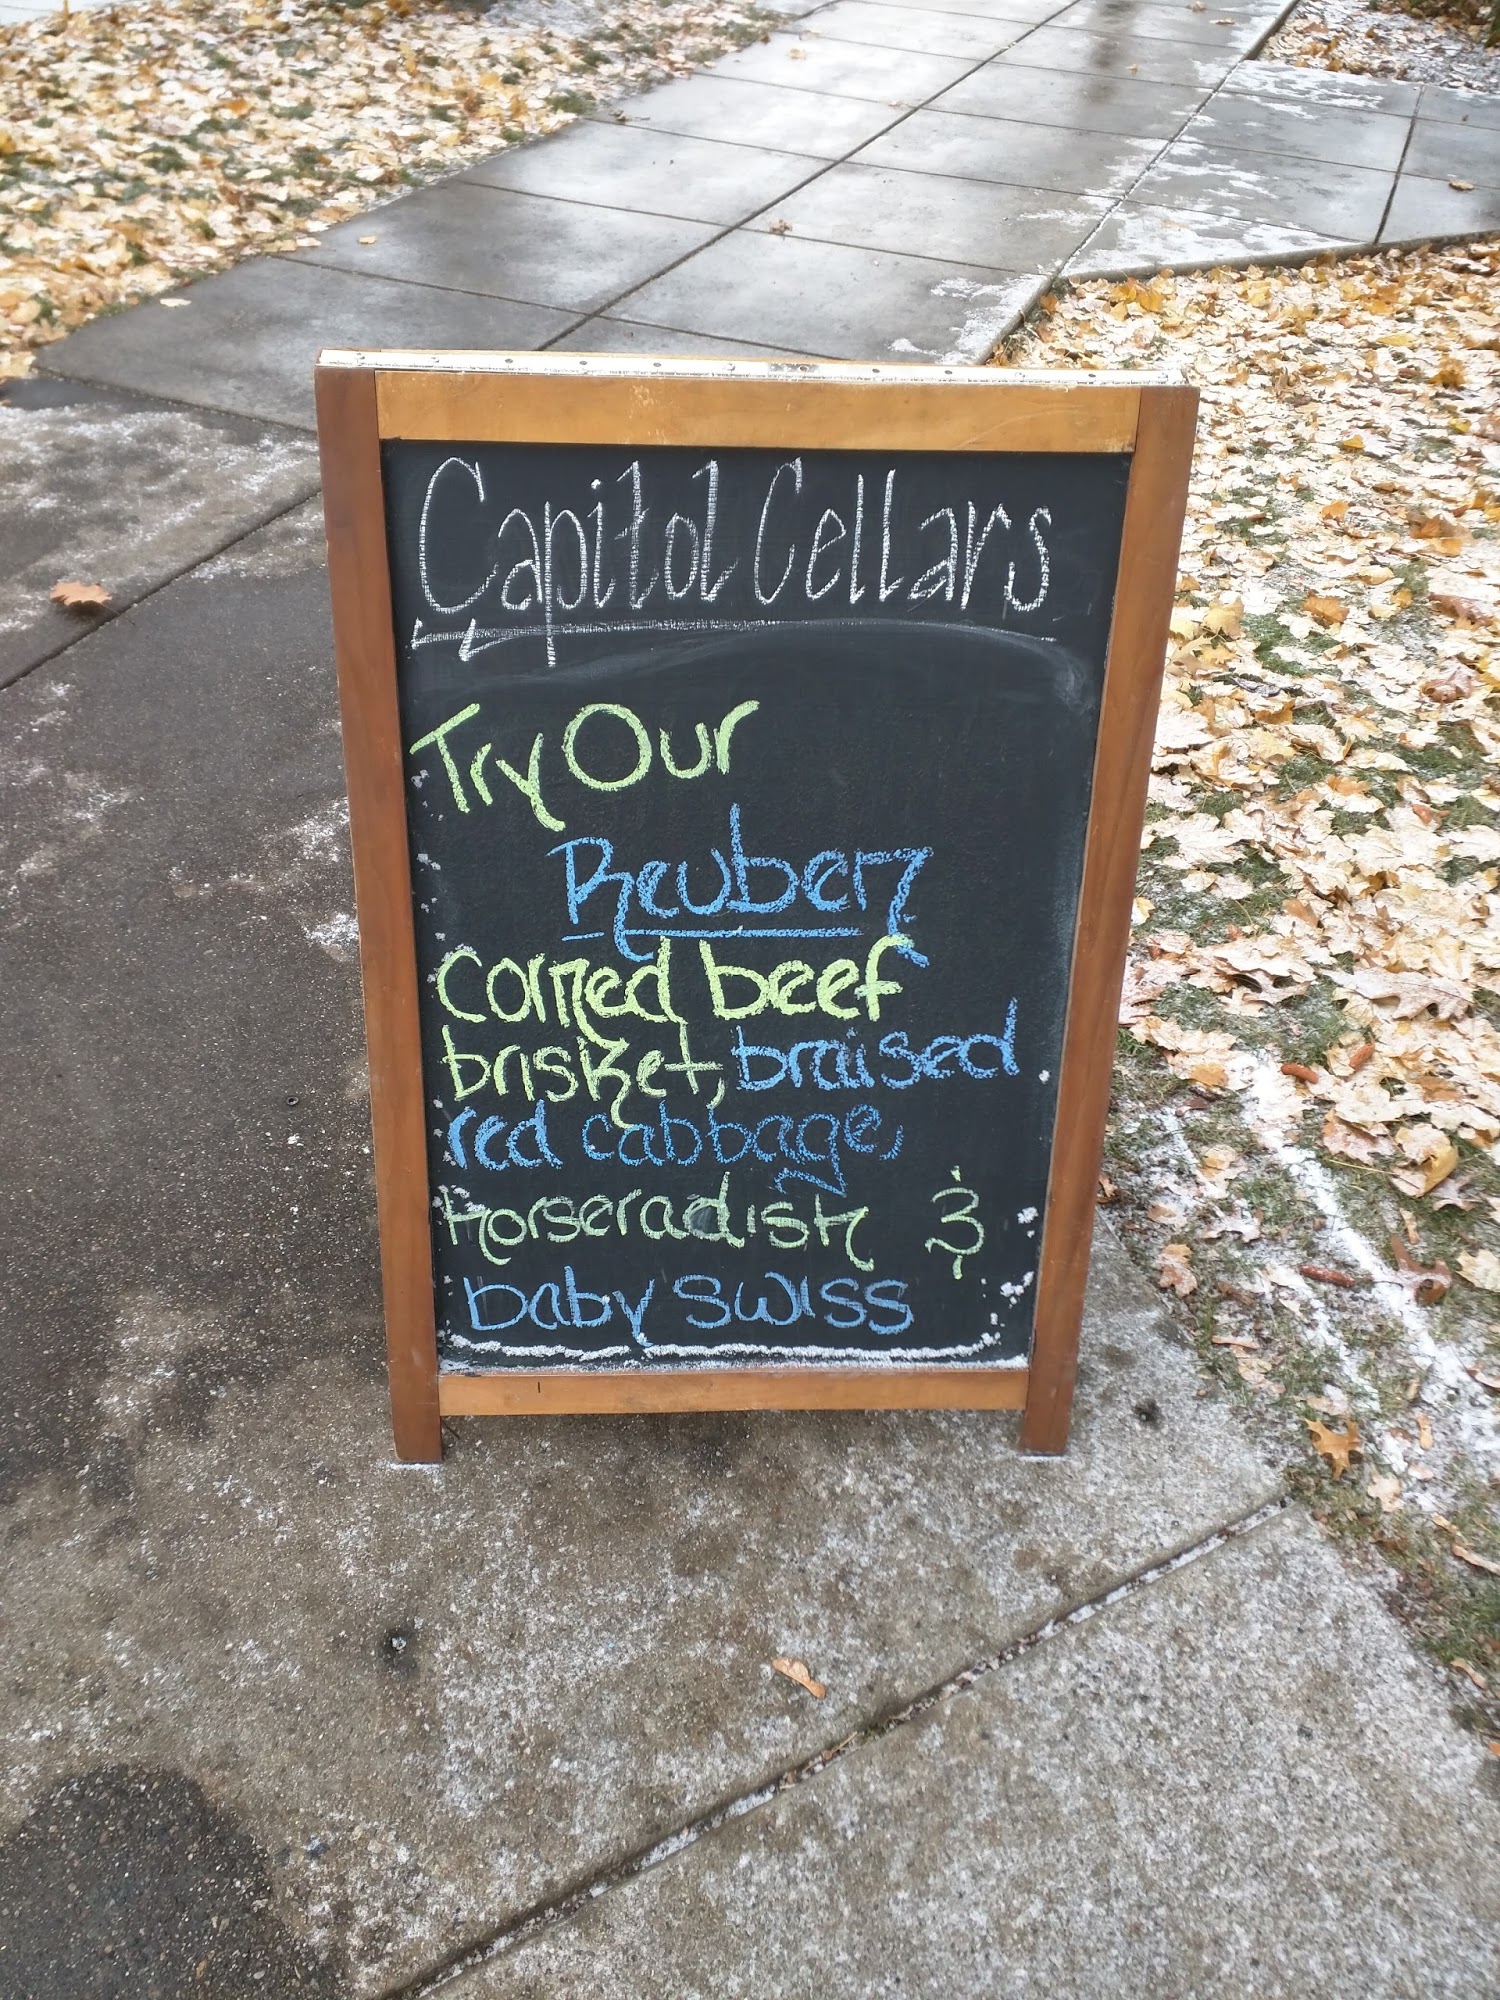 Capitol Cellars
Try Our
Reuben
corned beef
brisket, braised
red cabbage
horseradish &
baby swiss